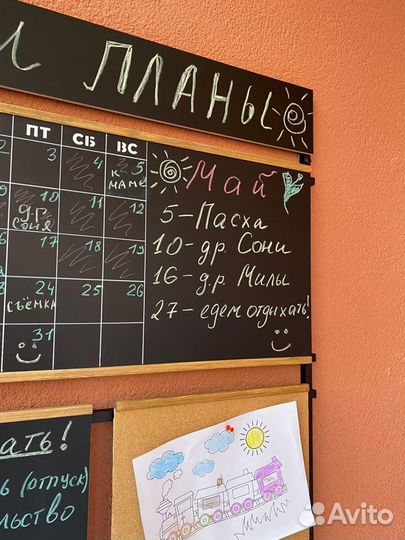 ПЛАНЫ
ПТ СБ ВС
3 4 5
К МАМЕ
Май
10 11 12
Д.Р. СОНЯ
5 – Пасха
10 – др. Сони
17 18 19
16 – д.р. Милы
24 25 26
СЪЁМКА
27 – едем отдыхать!
31
ать!
ь (отпуск)
льство
Avito